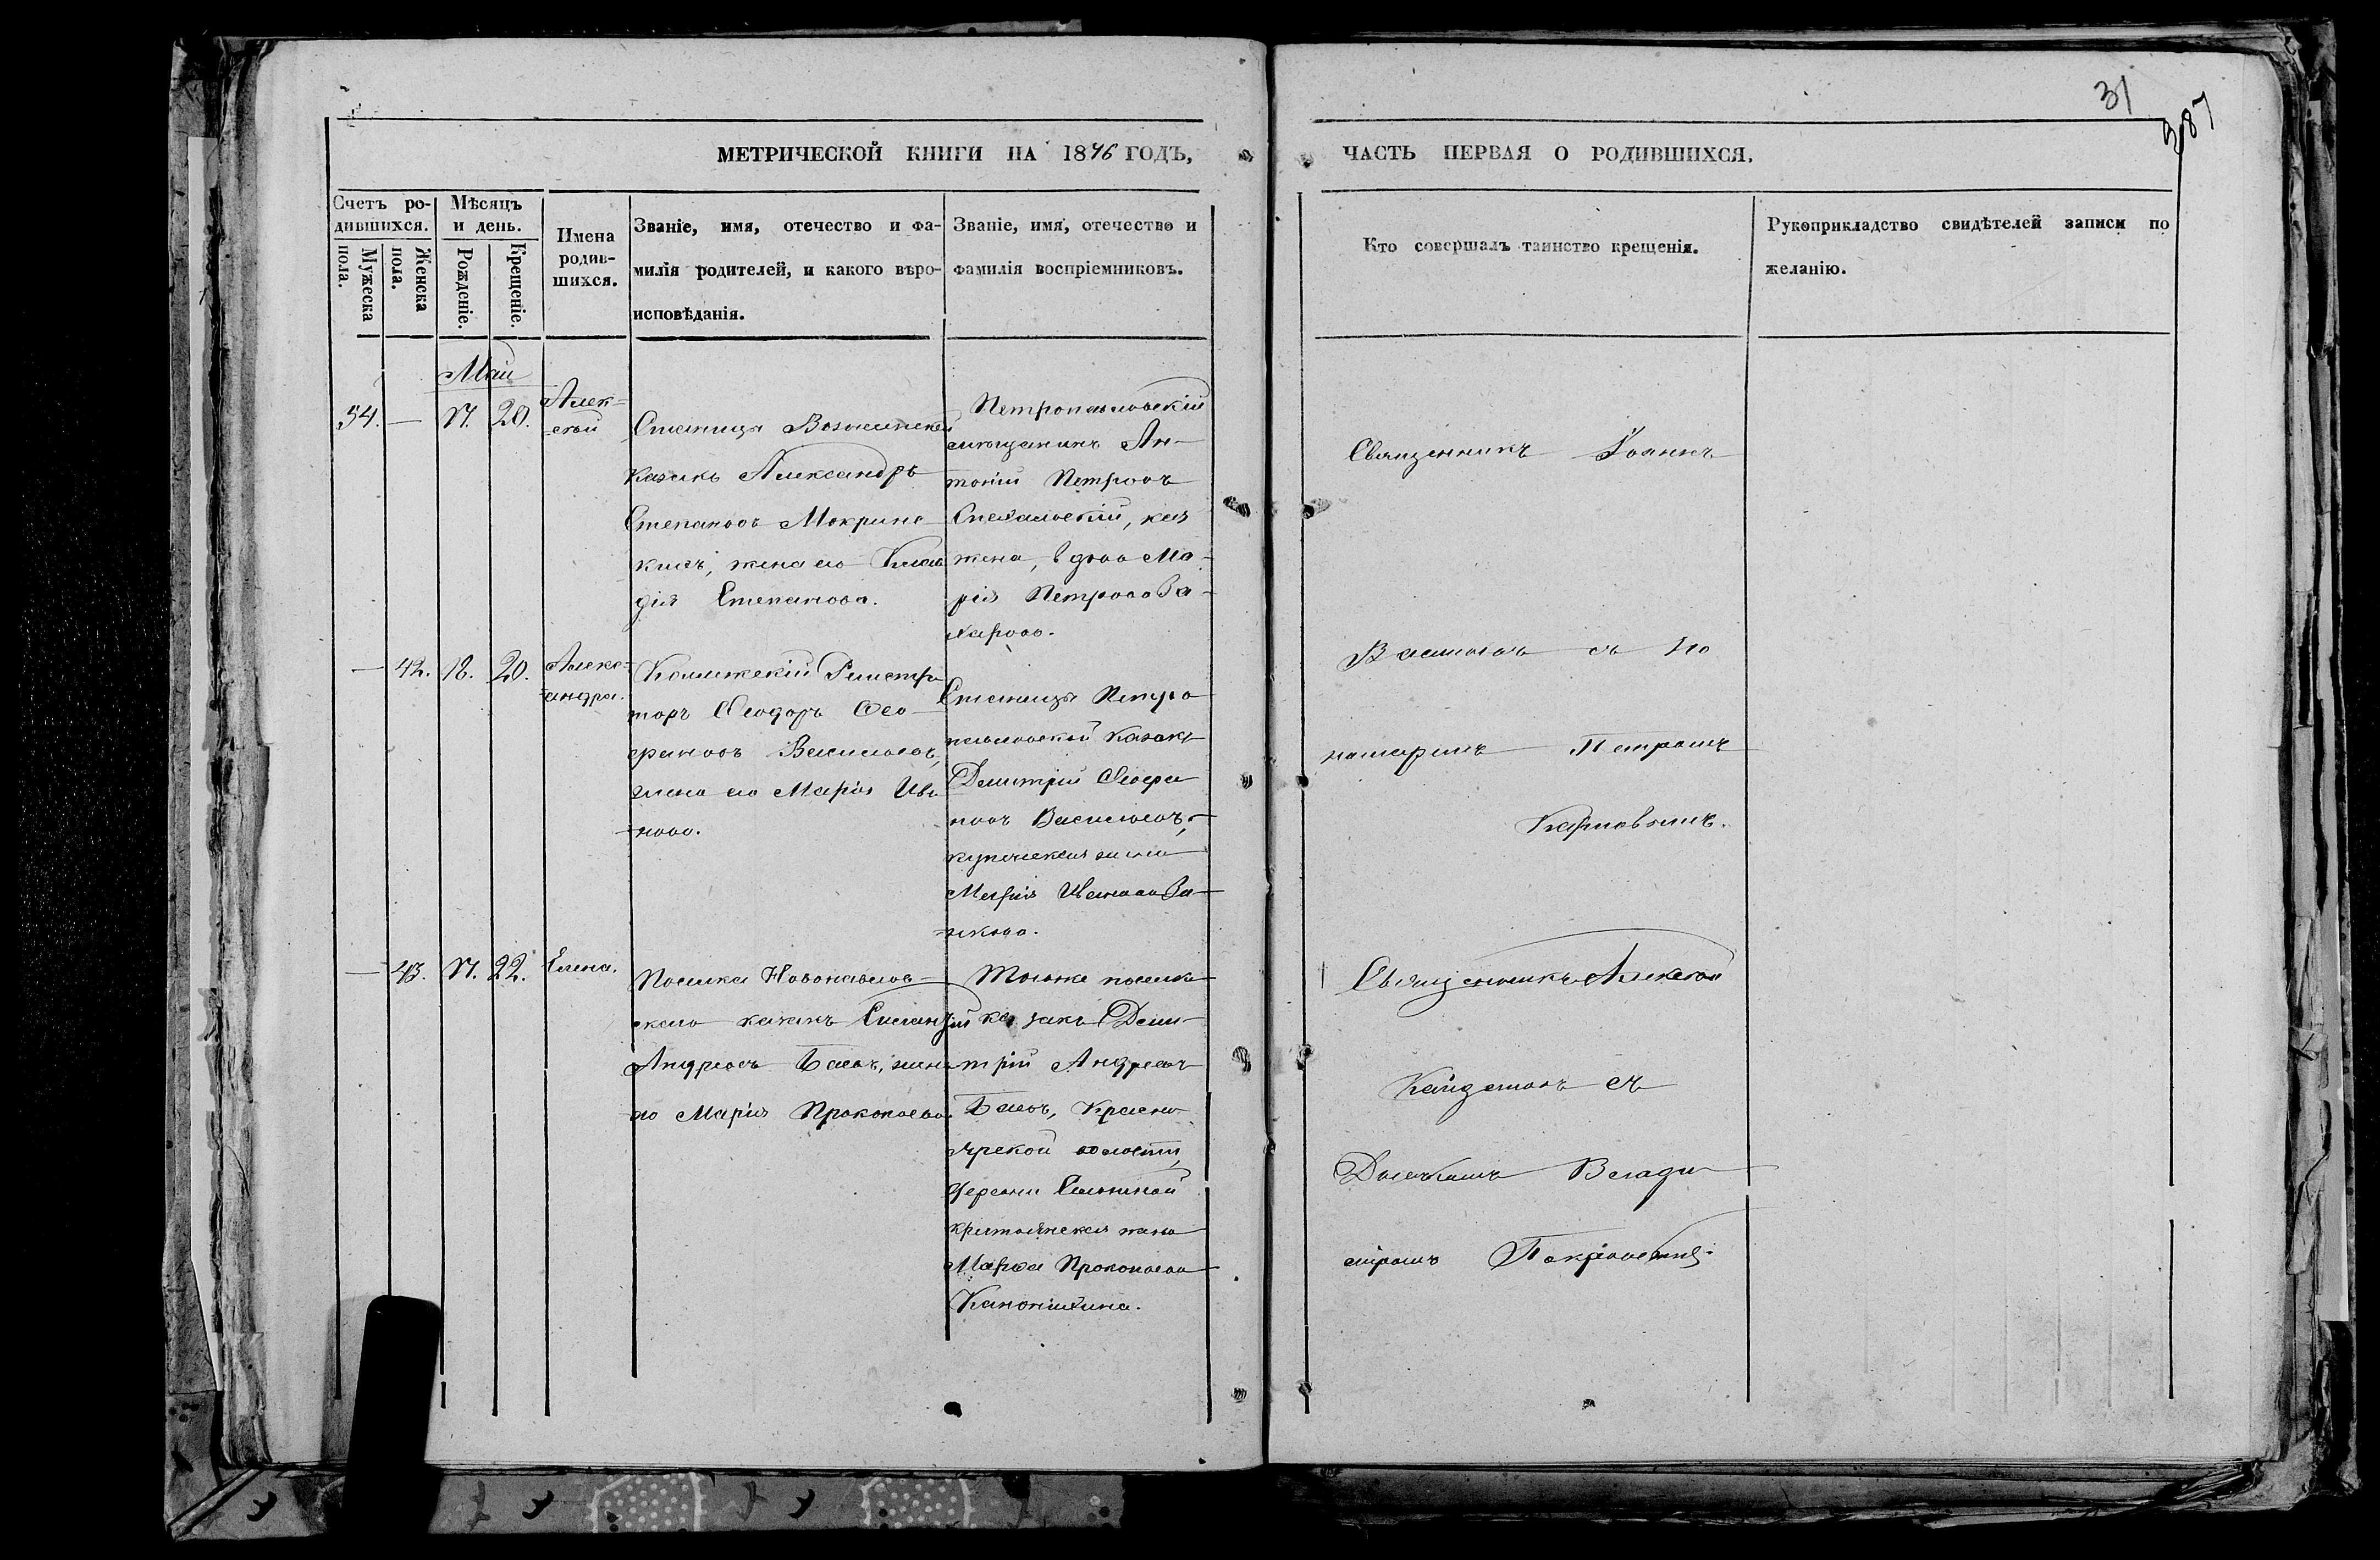 31
387
МЕТРИЧЕСКОЙ КНИГИ НА 1876 ГОДЪ,
ЧАСТЬ ПЕРВАЯ О РОДИВШИХСЯ.
Счетъ ро-
дившихся.
Мужеска
пола.
Женска
пола.
Мѣсяцъ
и день.
Рожденіе.
Крещеніе.
Имена
родив-
шихся.
Званіе, имя, отечество и фа-
милія родителей, и какого вѣро-
исповѣданія.
Званіе, имя, отечество и
фамилія воспріемниковъ.
Кто совершалъ таинство крещенія.
Рукоприкладство свидѣтелей записи по
желанію.
Май
54. — 17. 20.
Алек-
сѣй
Станицы
казакъ Александръ
Степановъ Мокринс
кихъ, жена его Клав
дія Степанова.
Петропавловскій
мѣщанинъ Ан-
тоній Петровъ
жена, вдова Ма-
рія Петрова За-
харова.
Священникъ Іоаннъ
Васильевъ съ по
номаремъ Петромъ
— 42. 18. 20.
Алекс-
андра.
Коллежскій Регистра
торъ Ѳеодоръ Ѳео-
фановъ Васильевъ,
жена его Марія Ива
нова.
Станицы Петро
павловской казакъ
Димитрій Ѳеофа
новъ Васильевъ,
купеческая жена
Марія Иванова За-
— 43. 17. 22.
Елена.
Поселка Новопавлов-
скаго казакъ
Андреевъ Басовъ, жена
его Марія Прокопьева
Тогоже поселка
казакъ Дими-
трій Андреевъ
Басовъ, Красно
ярской волости,
деревни
крестьянская жена
Марѳа Прокопьева
Канонихина.
Священникъ Алексѣй
съ
Дьячкомъ Влади
міромъ